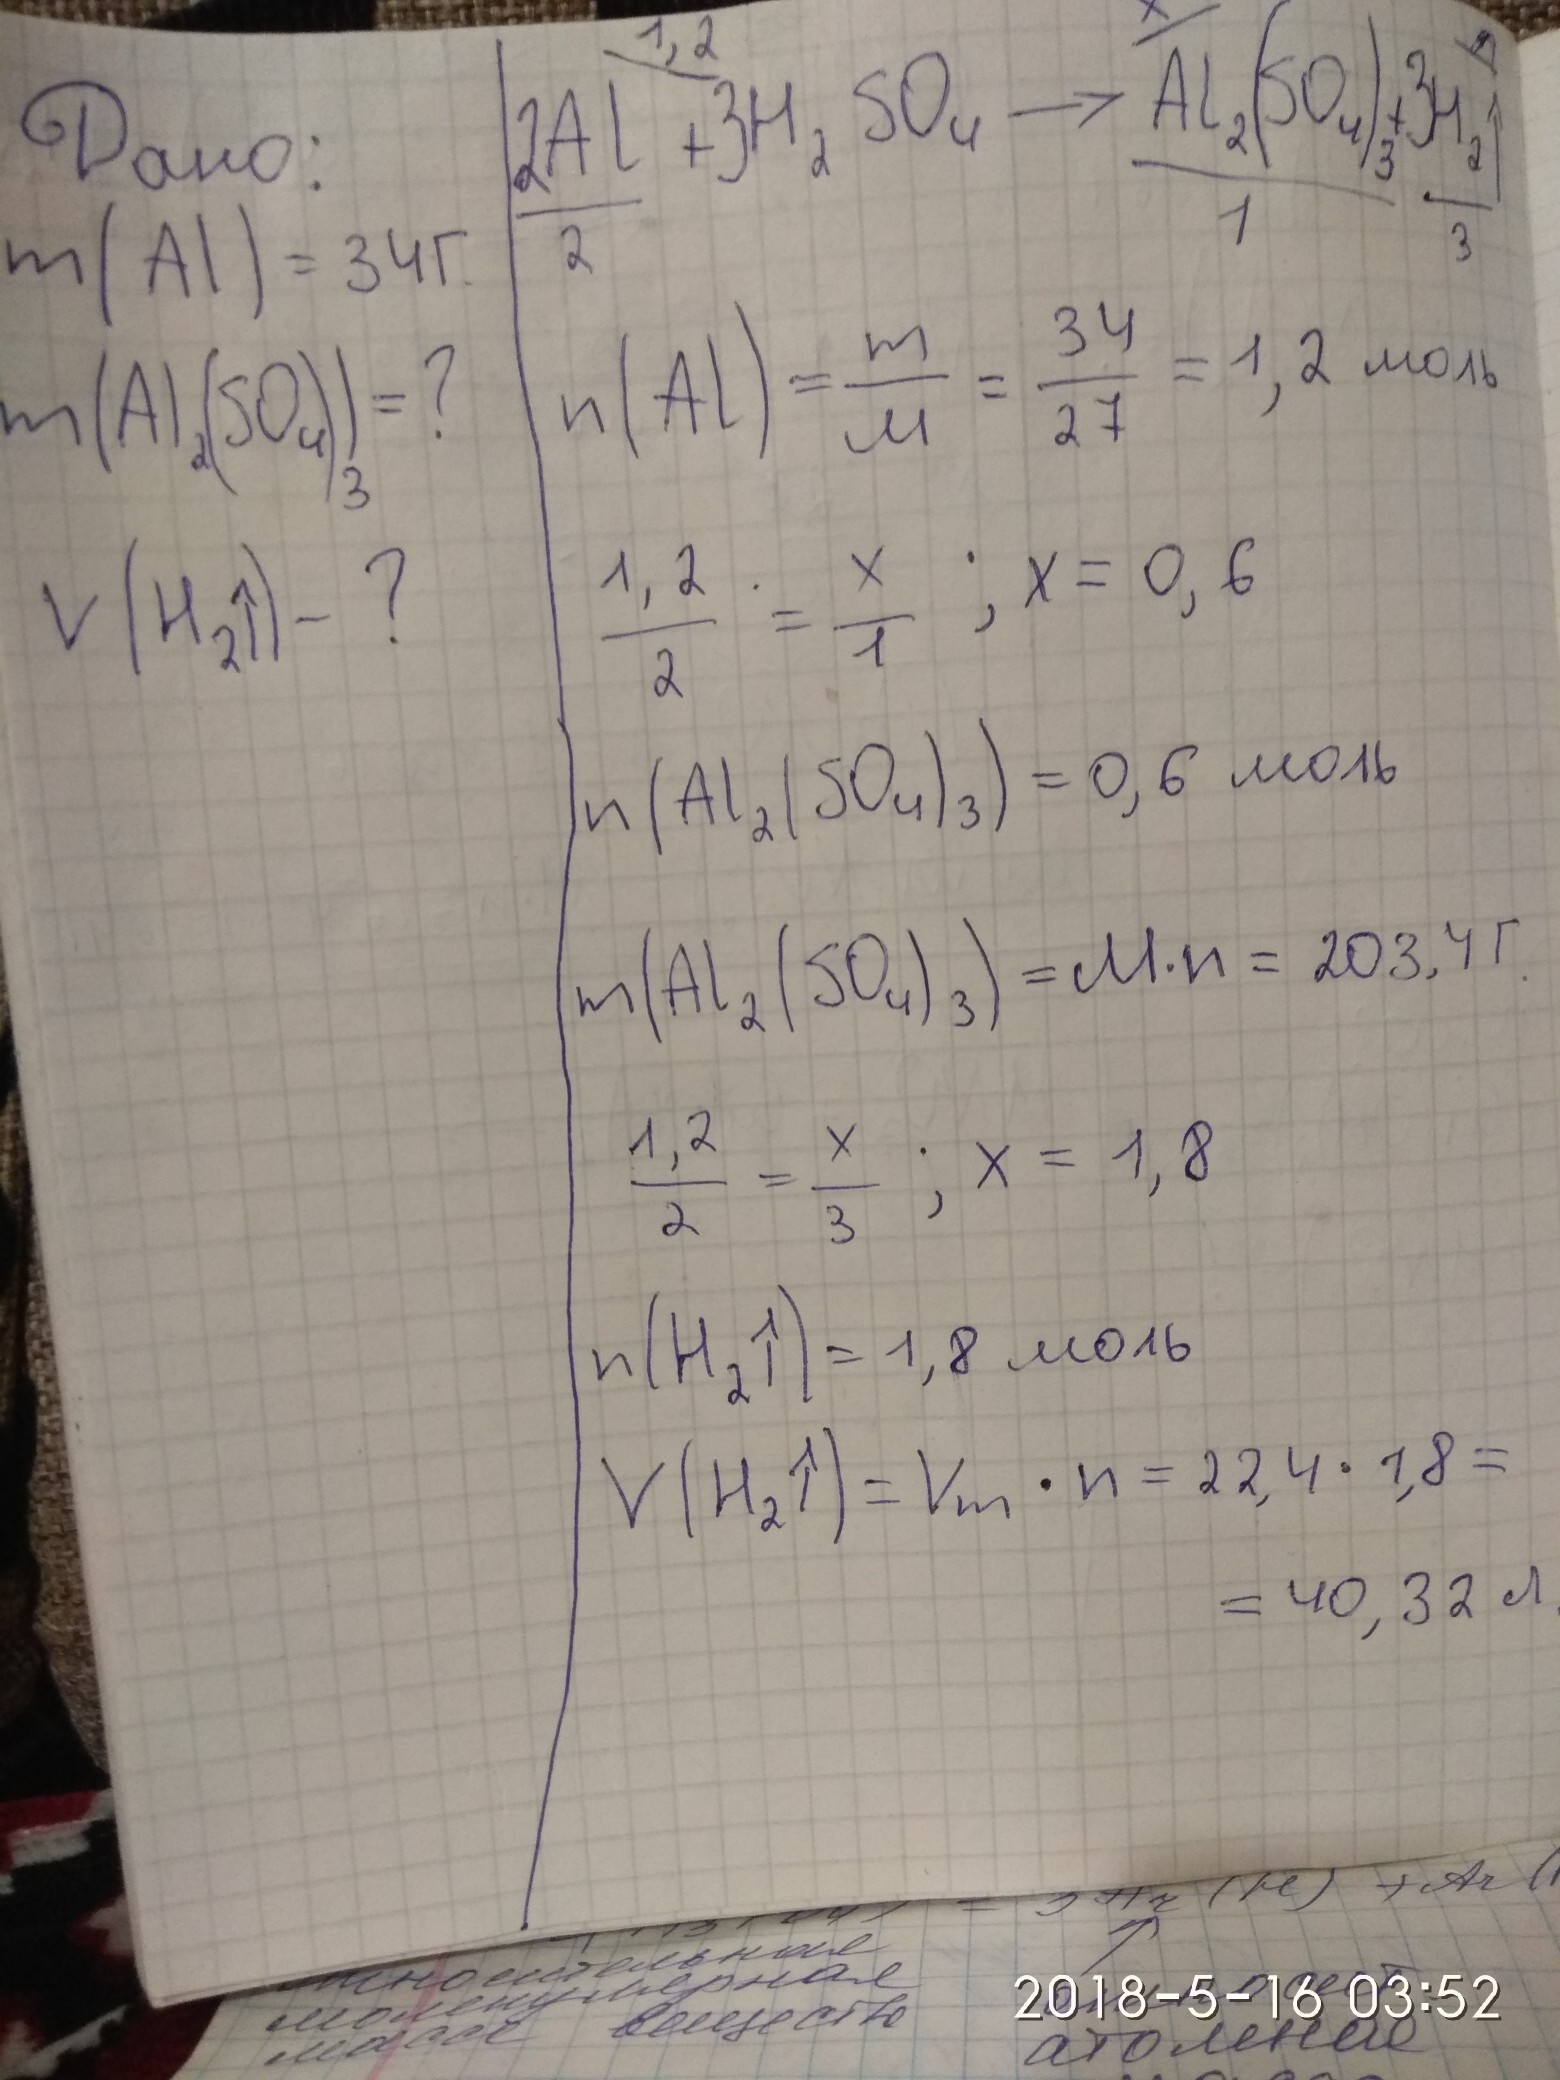 Дано:
m(Al) = 34г.
m(Al₂(SO₄)₃) = ?
V(H₂↑) - ?
1,2 x
2Al + 3H₂SO₄ → Al₂(SO₄)₃ + 3H₂↑
2 1 3
n(Al) = m/M = 34/27 = 1,2 моль
1,2/2 = x/1 ; x = 0,6
n(Al₂(SO₄)₃) = 0,6 моль
m(Al₂(SO₄)₃) = M·n = 203,4г.
1,2/2 = x/3 ; x = 1,8
n(H₂↑) = 1,8 моль
V(H₂↑) = Vm · n = 22,4 · 1,8 =
= 40,32 л.
относительная
молекулярная
масса вещество
2018-5-16 03:52
атомные